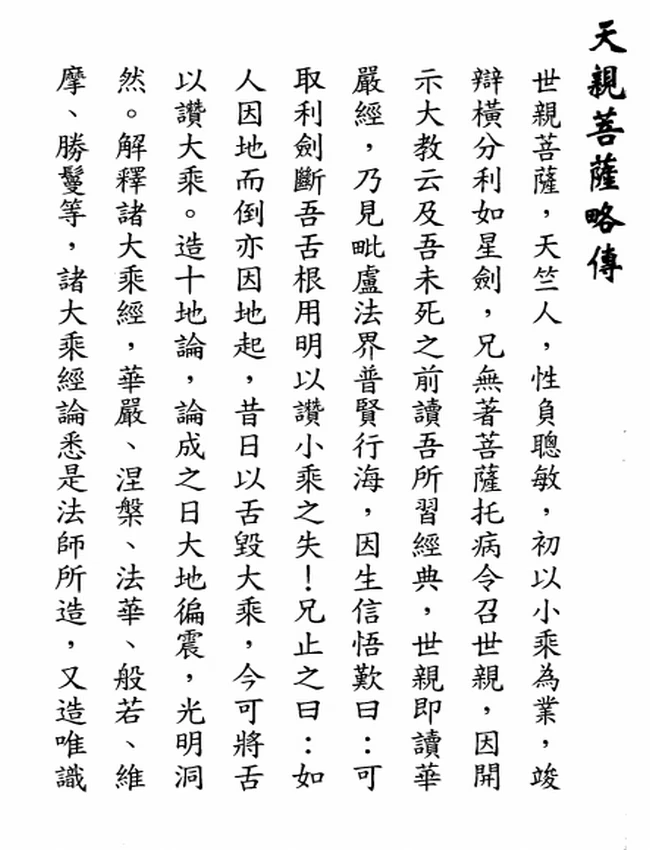 天親菩薩略傳
世親菩薩，天竺人，性負聰敏，初以小乘為業，竣
辯橫分利如星劍，兄無著菩薩托病令召世親，因開
示大教云及吾未死之前讀吾所習經典，世親即讀華
嚴經，乃見毗盧法界普賢行海，因生信悟歎曰：可
取利劍斷吾舌根用明以讚小乘之失！兄止之曰：如
人因地而倒亦因地起，昔日以舌毀大乘，今可將舌
以讚大乘。造十地論，論成之日大地徧震，光明洞
然。解釋諸大乘經，華嚴、涅槃、法華、般若、維
摩、勝鬘等，諸大乘經論悉是法師所造，又造唯識